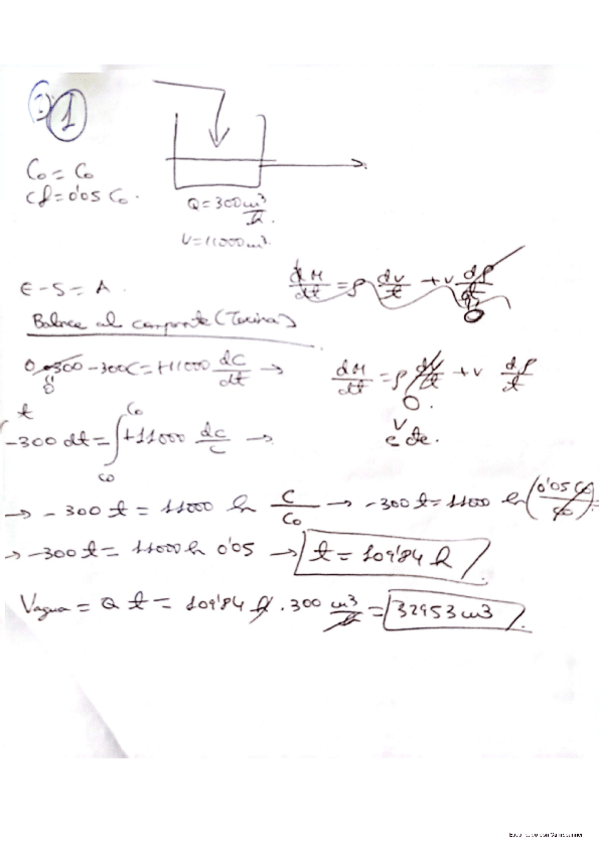 1
C₀ = C₀
Cf = 0'05 C₀.
Q = 300 m³/h.
V = 11000 m³.
E - S = A.
dM/dt = ρ dV/t + V dρ/dt
0
Balance al componente (Toxina)
0·300 - 300C = +11000 dC/dt →
0
dM/dt = ρ dV/t + V dρ/t
0.
V cte.
t
C₀
-300 dt = ∫ +11000 dC/C →
C₀
→ -300 t = 11000 ln C/C₀ → -300 t = 1100 ln (0'05 C₀/C₀)
→ -300 t = 11000 ln 0'05 → t = 109'84 h
Vagua = Q t = 109'84 h · 300 m³/h = 32953 m3